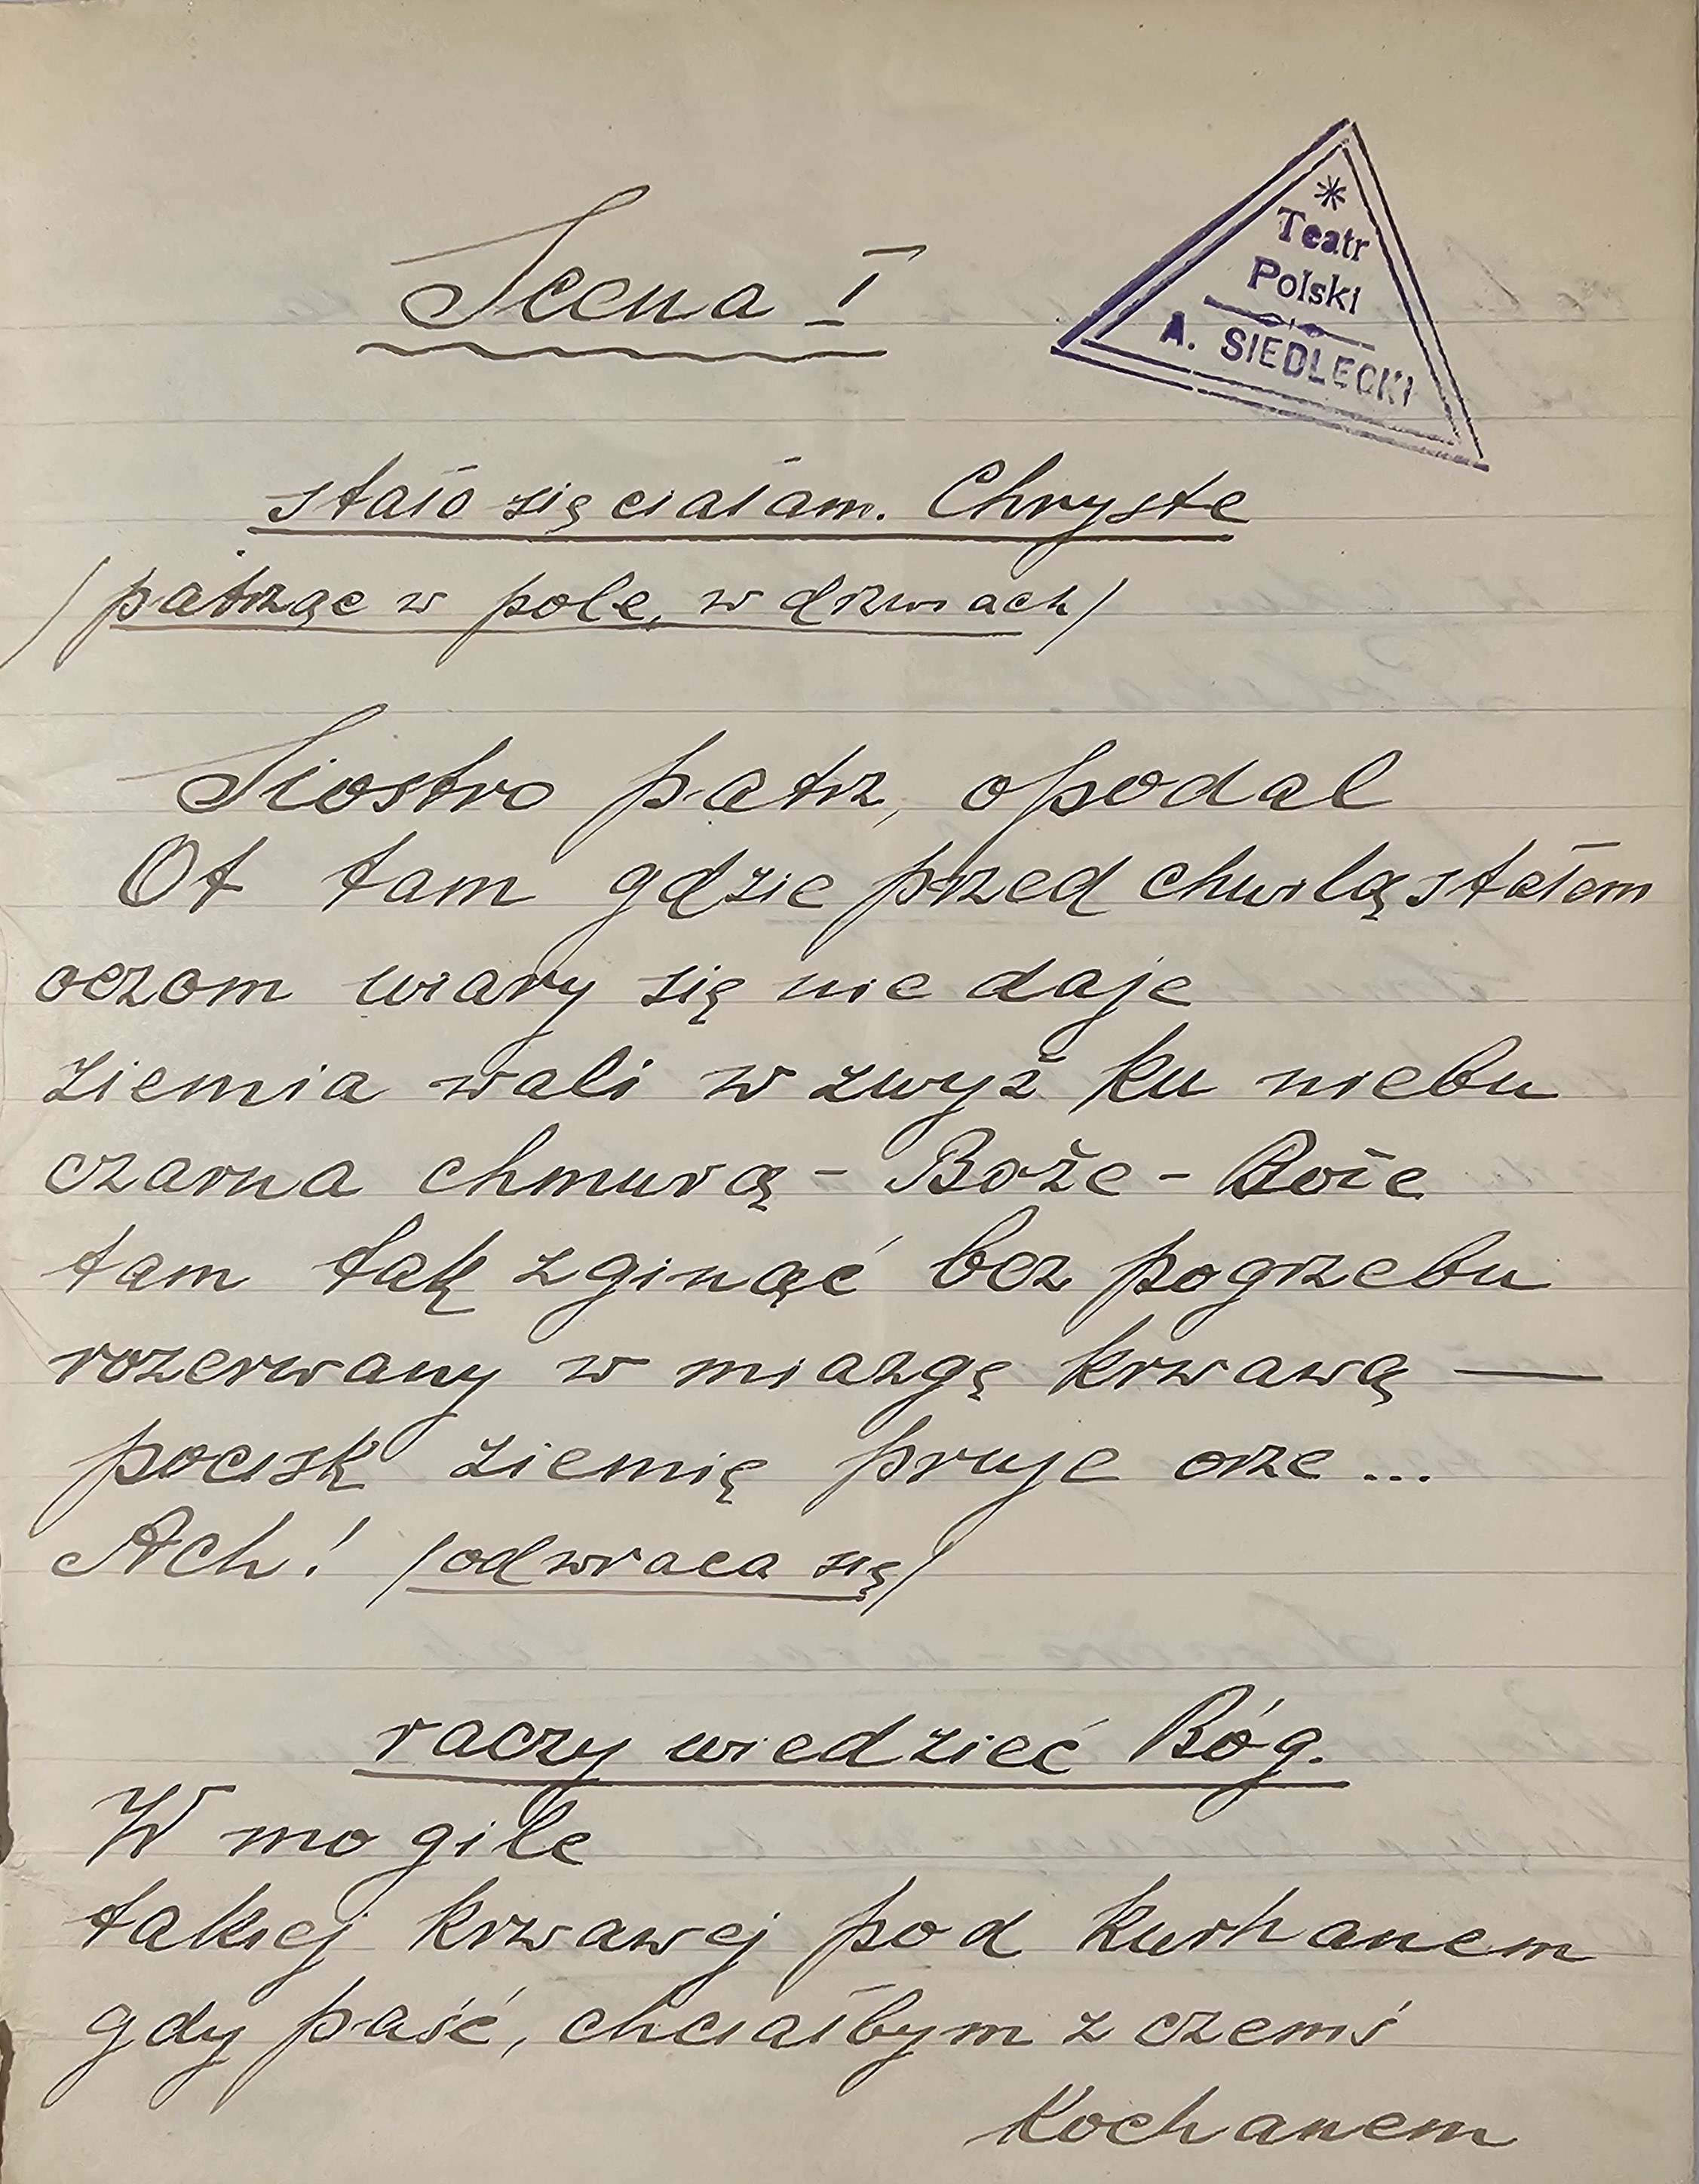 Scena I
* Teatr
Polski
A. SIEDLECKI
stało się ciałam. Chryste
/patrząc w pole, w drzwiach/
Siostro patrz, opodal
Ot tam gdzie przed chwilą stałem
oczom wiary się nie daje
ziemia wali w zwyż ku niebu
czarna chmurą - Boże - Boże
tam tak zginąć bez pogrzebu
rozerwany w miazgę krwawą —
pocisk ziemię pruje orze ...
Ach! /odwraca się/
raczy wiedzieć Bóg.
W mogile
takiej krwawej pod kurhanem
gdy paść, chciałbym z czemś
Kochanem